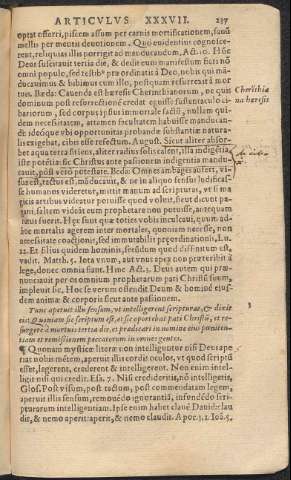 ARTICVLVS XXXVII. 237
optat offerri, piscem assum per carnis mortificationem, fauũ
mellis per mentis deuotionem. Quo euidentius cognosce-
rent, reliquias illis porrigit ad manducandum. Act. 10. Hũc
Deus suscitauit tertia die, & dedit eum manifestum fieri nõ
omni populo, sed testibus præordinatis à Deo, nobis qui mã-
ducauimus & bibimus cum illo, postquam resurrexit à mor
tuis. Beda: Cauenda est hæresis Cherinthianorum, de quis
dominum post resurrectionē credat eguisse sustentaculo ci-
bariorum, sed corpus ipsius immortale factũ, nullam qui-
dem necessitatem, attamen facultatem habuisse manducan-
di: ideoque vbi opportunitas probandæ substantiæ natura-
lis exigebat, cibis vsus refectum. August. Sicut aliter absor-
bet aquam terra sitiens, aliter radius solis calens, illa indigētia
iste potētia: sic Christus ante passionem indigentia mandu-
cauit, post verò potestate. Beda: Omnes ambages aufert, vi-
sus est, tactus est, mãducauit, & ne in aliquo sensus ludificas-
se humanos videretur, mittit manum ad scripturas, vt si ma
gicis artibus videatur potuisse quod voluit,
gant, saltem videãt eum prophetare non potuisse, antequam
natus fuerit. Hęc sunt quæ toties vobis inculcaui,
iore mortalis agerem inter mortales, quoniam necesse, non
necessitate coactionis, sed immutabilis præordinationis, Lu.
22. Et filius quidem hominis, secundum quod diffinitum est,
vadit. Matth. 5. Iota vnum, aut vnus apex non præteribit à
lege, donec omnia fiant. Hinc Act. 3. Deus autem qui præ-
nunciauit per os omnium prophetarum pati Christũ suum,
impleuit sic. Hoc se verum ostendit Deum & hominē eius-
dem animæ & corporis sicut ante passionem.
Tunc aperuit illis sensum, vt intelligerent scripturas, & dixit
eis: Quoniam sic scriptum est, & sic oportebat pati Christũ, et re-
surgere à mortuis tertia die, et prædicari in nomine eius pœniten-
tiam et remissionem peccatorum in omnes gentes.
¶ Quoniam mysticæ literæ non intelliguntur nisi Deus ape
riat nobis mētem, aperuit illis cordis oculos, vt quod scriptũ
esset, legerent, crederent & intelligerent. Non enim intel-
ligit nisi qui credit. Esa. 7. Nisi credideritis, nō intelligetis,
Glos. Post visum, post tactum, post commendatam legem,
aperuit illis sensum, remouēdo ignorantiã, infundēdo scri-
pturarum intelligentiam. Ipse enim habet clauē Dauid: clau
dit, & nemo aperit: aperit, & nemo claudit. Apoc. 3, 2. Ioã. 5.
Cherĩthia
na hæresis
3